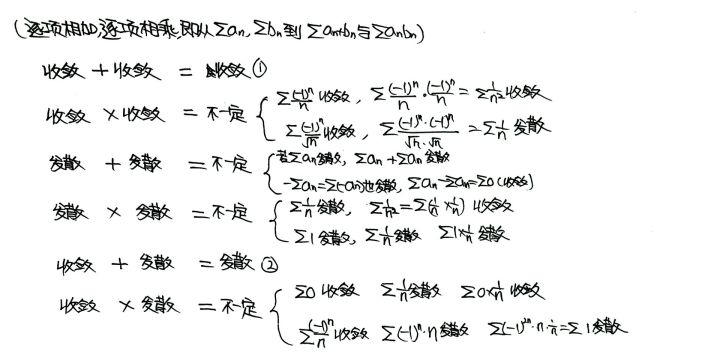 (逐项相加,逐项相乘,即从Σan,Σbn到Σan+bn与Σanbn)
收敛 + 收敛 = 收敛①
收敛 × 收敛 = 不一定 { Σ(-1)^n/n 收敛, Σ(-1)^n/n·(-1)^n/n = Σ1/n² 收敛
Σ(-1)^n/√n 收敛, Σ(-1)^n·(-1)^n/√n·√n = Σ1/n 发散
发散 + 发散 = 不一定 { 若Σan发散, Σan+Σan发散
-Σan=Σ(-an)也发散, Σan-Σan=Σ0(收敛)
发散 × 发散 = 不一定 { Σ1/n 发散, Σ1/n²=Σ(1/n×1/n) 收敛
Σ1发散, Σ1/n 发散 Σ1×1/n 发散
收敛 + 发散 = 发散②
收敛 × 发散 = 不一定 { Σ0 收敛 Σ1/n 发散 Σ0×1/n 收敛
Σ(-1)^n/n 收敛 Σ(-1)^n·n 发散 Σ(-1)^2n·n·1/n=Σ1发散